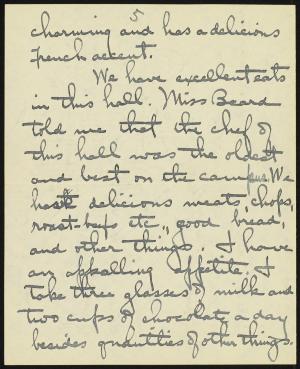 5
charming and has a delicious
french accent.
We have excellent eats
in this hall. Miss Beard
told me that the chef of
this hall was the oldest
and best on the campus. We
have delicious meats, chops,
roast-beefs etc., good bread,
and other things. I have
an appalling appetite. I
take three glasses of milk and
two cups of chocolate a day
besides quantities of other things.